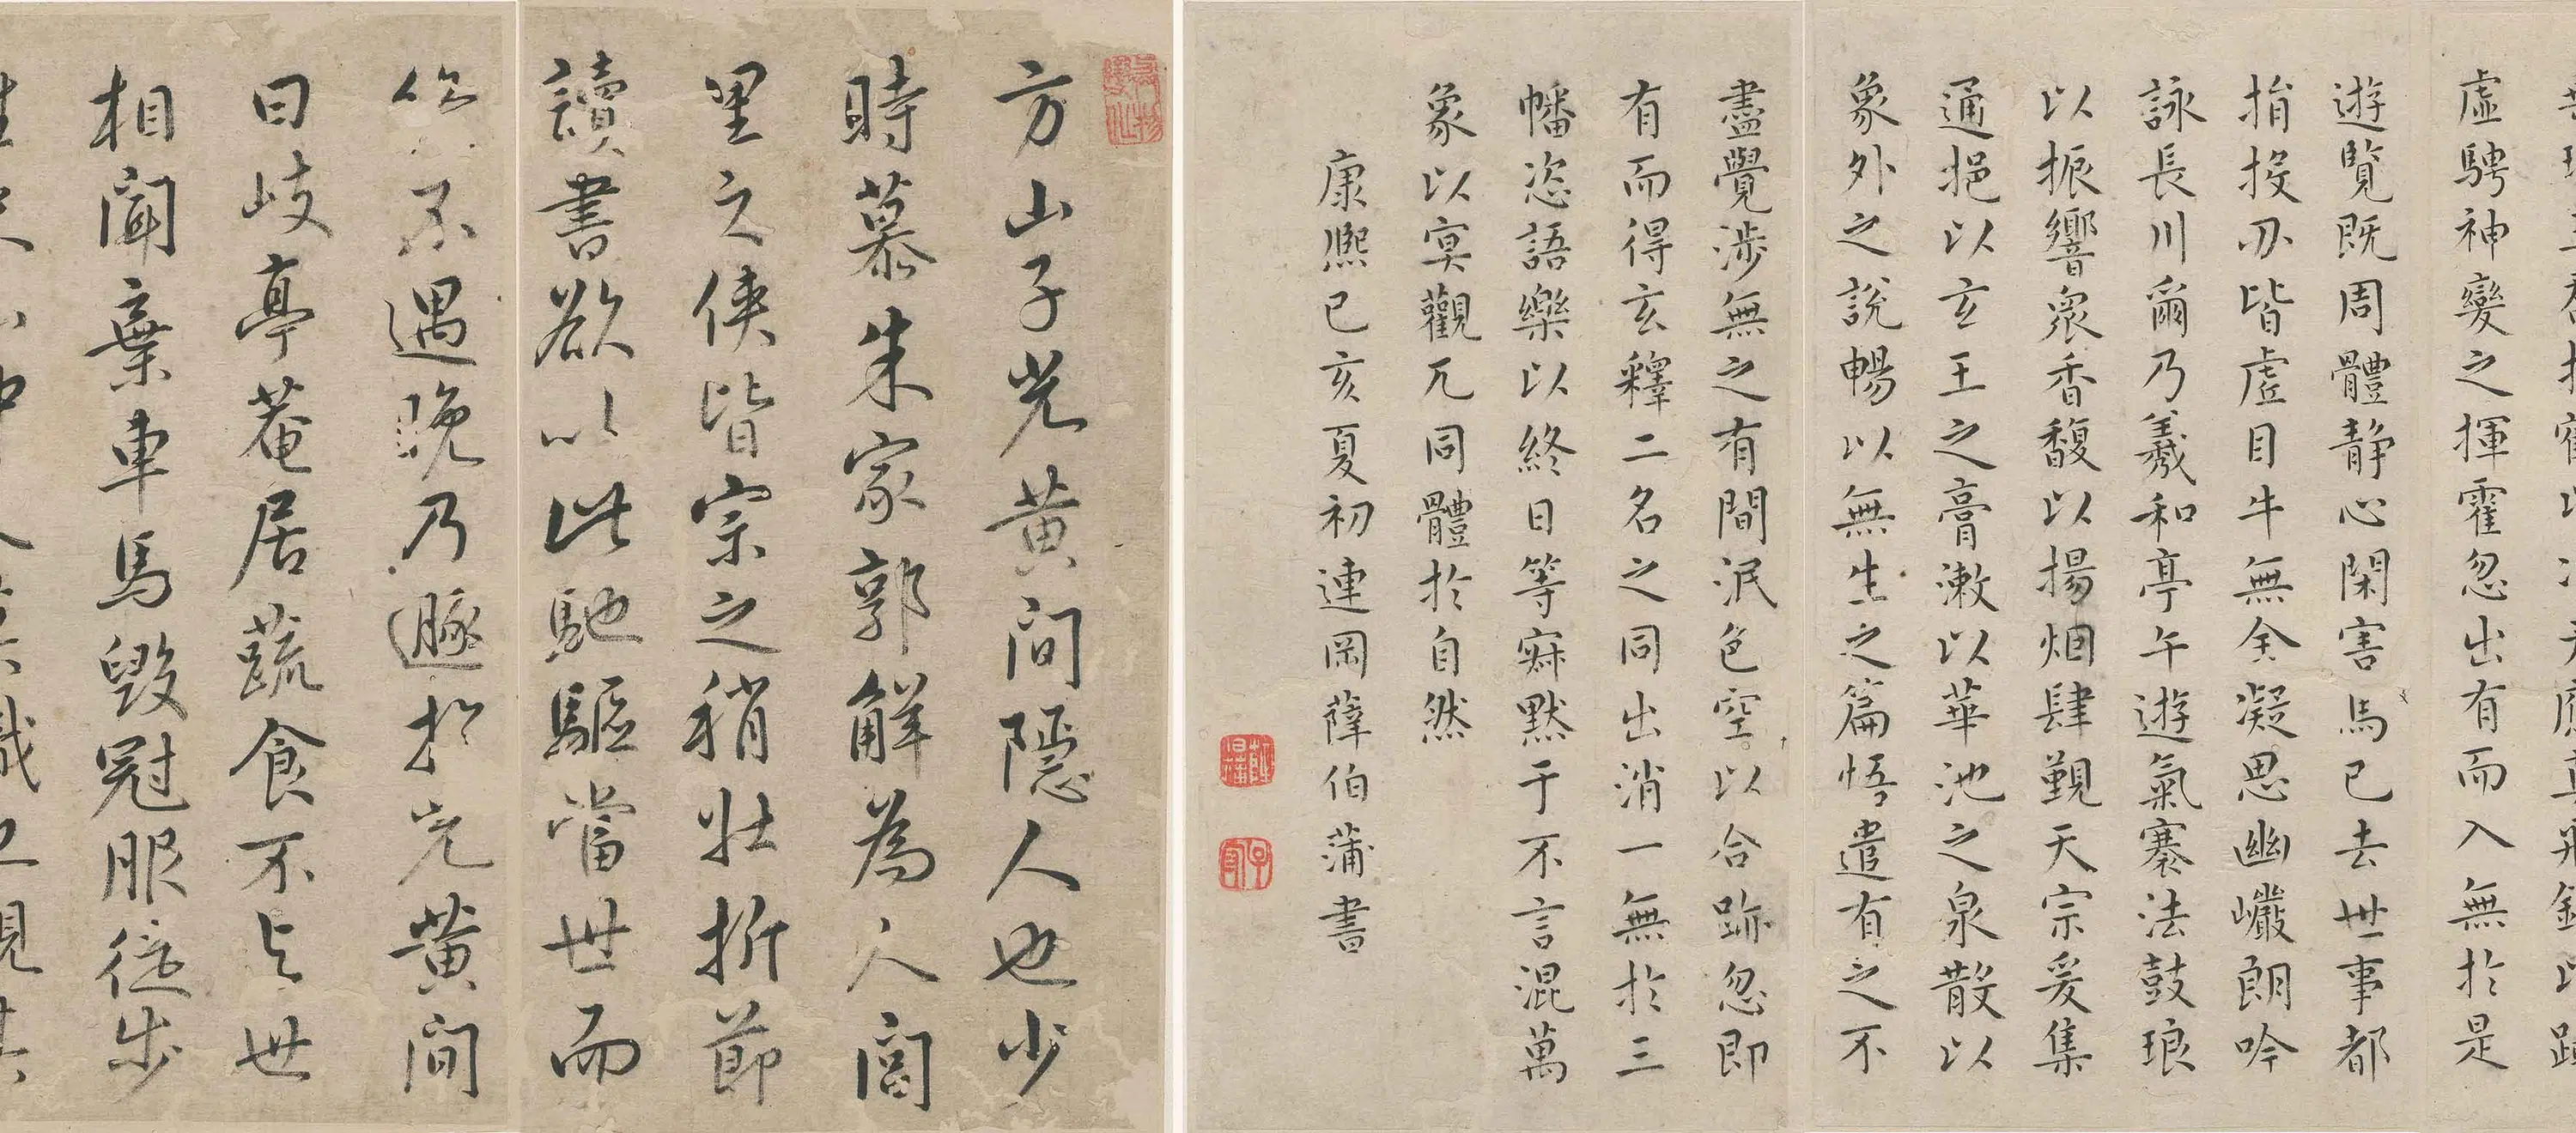 虛騁神變之揮霍忽出有而入無於是
遊覽既周體静心閑害馬已去世事都
捐投刃皆虛目牛無全凝思幽巖朗吟
詠長川爾乃羲和亭午遊氣褰法鼓琅
以振響衆香馥以揚烟肆覲天宗爰集
通挹以玄玉之膏漱以華池之泉散以
象外之說暢以無生之篇悟遣有之不
盡覺涉無之有間泯色空以合跡忽即
有而得玄釋二名之同出消一無於三
幡恣語樂以終日等寂默于不言混萬
象以冥觀兀同體於自然
康熙已亥夏初連岡薩伯蒲書
方山子光黄间隱人也少
時慕朱家郭解為人閭
里之俠皆宗之稍壯折節
讀書欲以此馳驅當世而
終不遇晚乃遯於光黄间
曰岐亭菴居蔬食不与世
相闻棄車馬毁冠服徒步